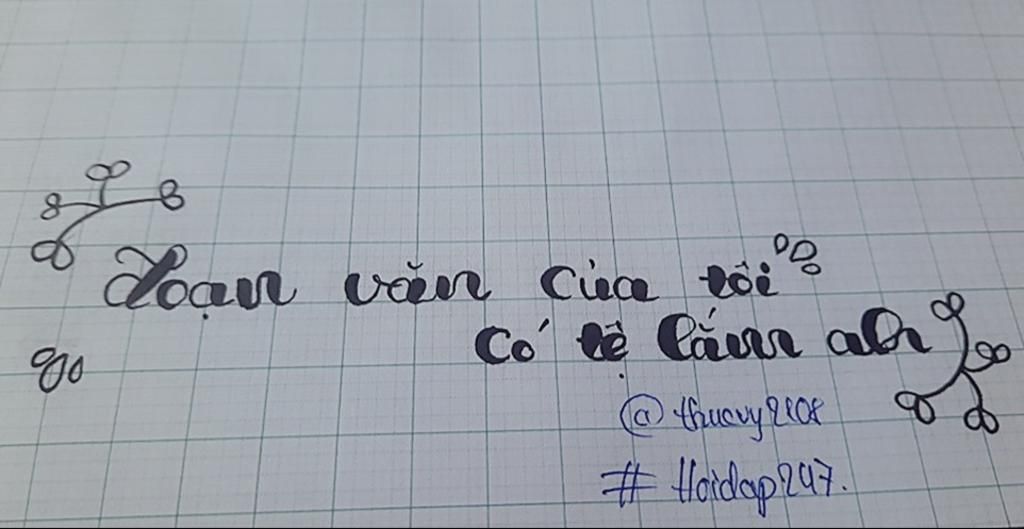 Đoạn văn của tôi
có tệ lắm ah
@thucvy2k08
# Hoidap247.